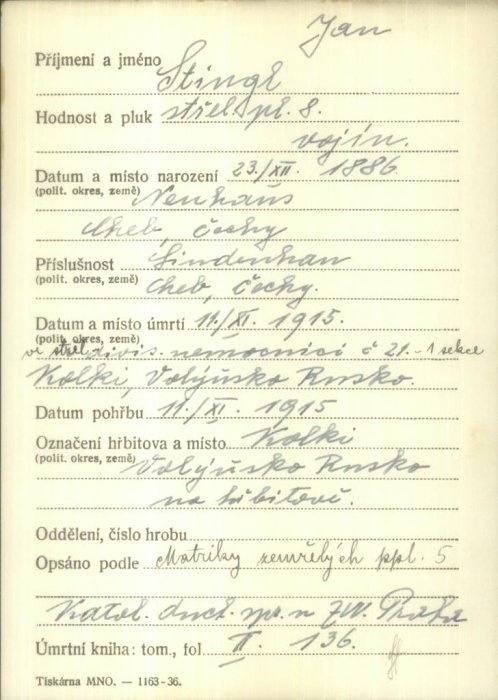 Jan
Příjmení a jméno Stingl
Hodnost a pluk střel. pl. 8.
vojín.
Datum a místo narození 23./XII. 1886
(polit. okres, země) Neuhaus
Cheb, Čechy
Příslušnost Lindenhau
(polit. okres, země) Cheb, Čechy.
Datum a místo úmrtí 11./XI. 1915.
(polit. okres, země)
v střel. divis. nemocnici č 21. - 1 sekce
Kolki, Volýňsko Rusko.
Datum pohřbu 11./XI. 1915
Označení hřbitova a místo Kolki
(polit. okres, země) Volýňsko Rusko
na hřbitově.
Oddělení, číslo hrobu
Opsáno podle Matriky zemřelých ppl. 5
Katol. duch. spr. u ZVV. Praha
Úmrtní kniha: tom., fol II. 136.
Tiskárna MNO. — 1163-36.